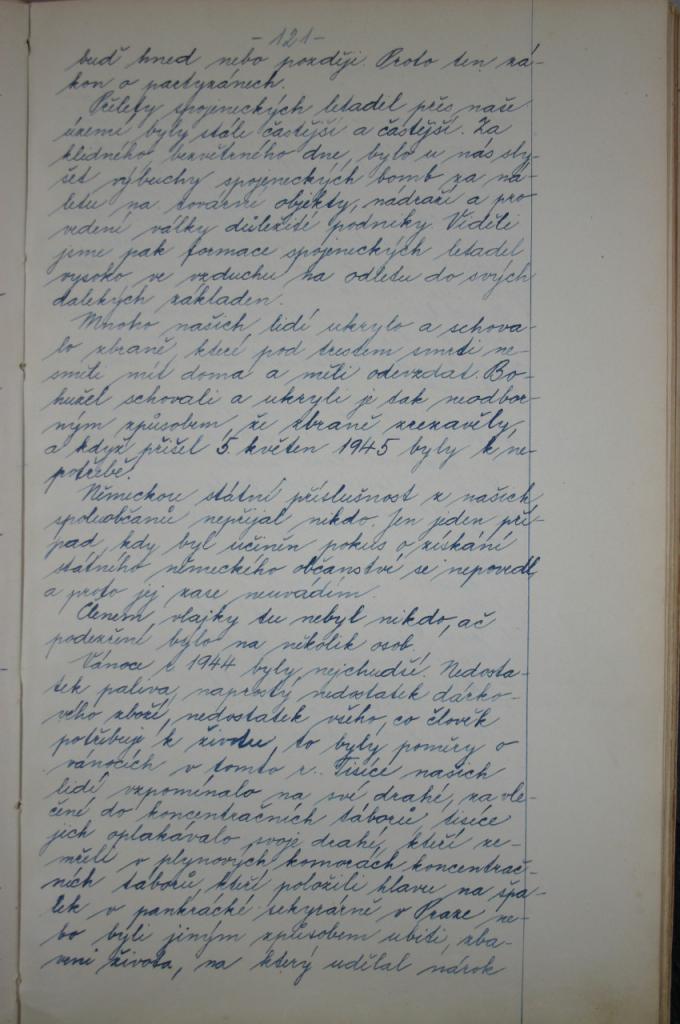 - 121 -
buď hned nebo později. Proto ten zá-
kon o partyzánech.
Přelety spojeneckých letadel přes naše
území byly stále častější a častější. Za
klidného, bezvětrného dne, bylo u nás sly-
šet výbuchy spojeneckých bomb za ná-
letu na tovarní objekty, nádraží a pro
vedení války důležité podniky. Viděli
jsme pak formace spojeneckých letadel
vysoko, ve vzduchu na odletu do svých
dalekých základen.
Mnoho našich lidí ukrylo a schova-
lo zbraně, které pod trestem smrti ne-
směli mít doma a měli odevzdat. Bo-
hužel schovali a ukryli je tak neodbor-
ným způsobem, že zbraně zrezavěly,
a když přišel 5. květen 1945 byly k ne-
potřebě.
Německou státní příslušnost z našich
spoluobčanů nepřijal nikdo. Jen jeden pří-
pad, kdy byl učiněn pokus o získání
státního německého občanství se nepovedl,
a proto jej zase neuvádím.
Členem, vlajky tu nebyl nikdo, ač
podezření bylo na několik osob.
Vánoce r. 1944 byly nejchudší. Nedosta-
tek paliva, naprostý nedostatek dárko-
vého zboží, nedostatek všeho, co člověk
potřebuje k životu, to byly poměry o
vánocích v tomto r.. Tisíce našich
lidí vzpomínalo na své drahé, zavle-
čené do koncentračních táborů, tisíce
jich oplakávalo svoje drahé, kteří ze-
mřeli v plynových komorách koncentrač-
ních táborů, kteří položili hlavu na špa-
lek v pankrácké sekyrárně v Praze ne-
bo byli jiným způsobem ubiti, zba-
veni života, na který udělal nárok